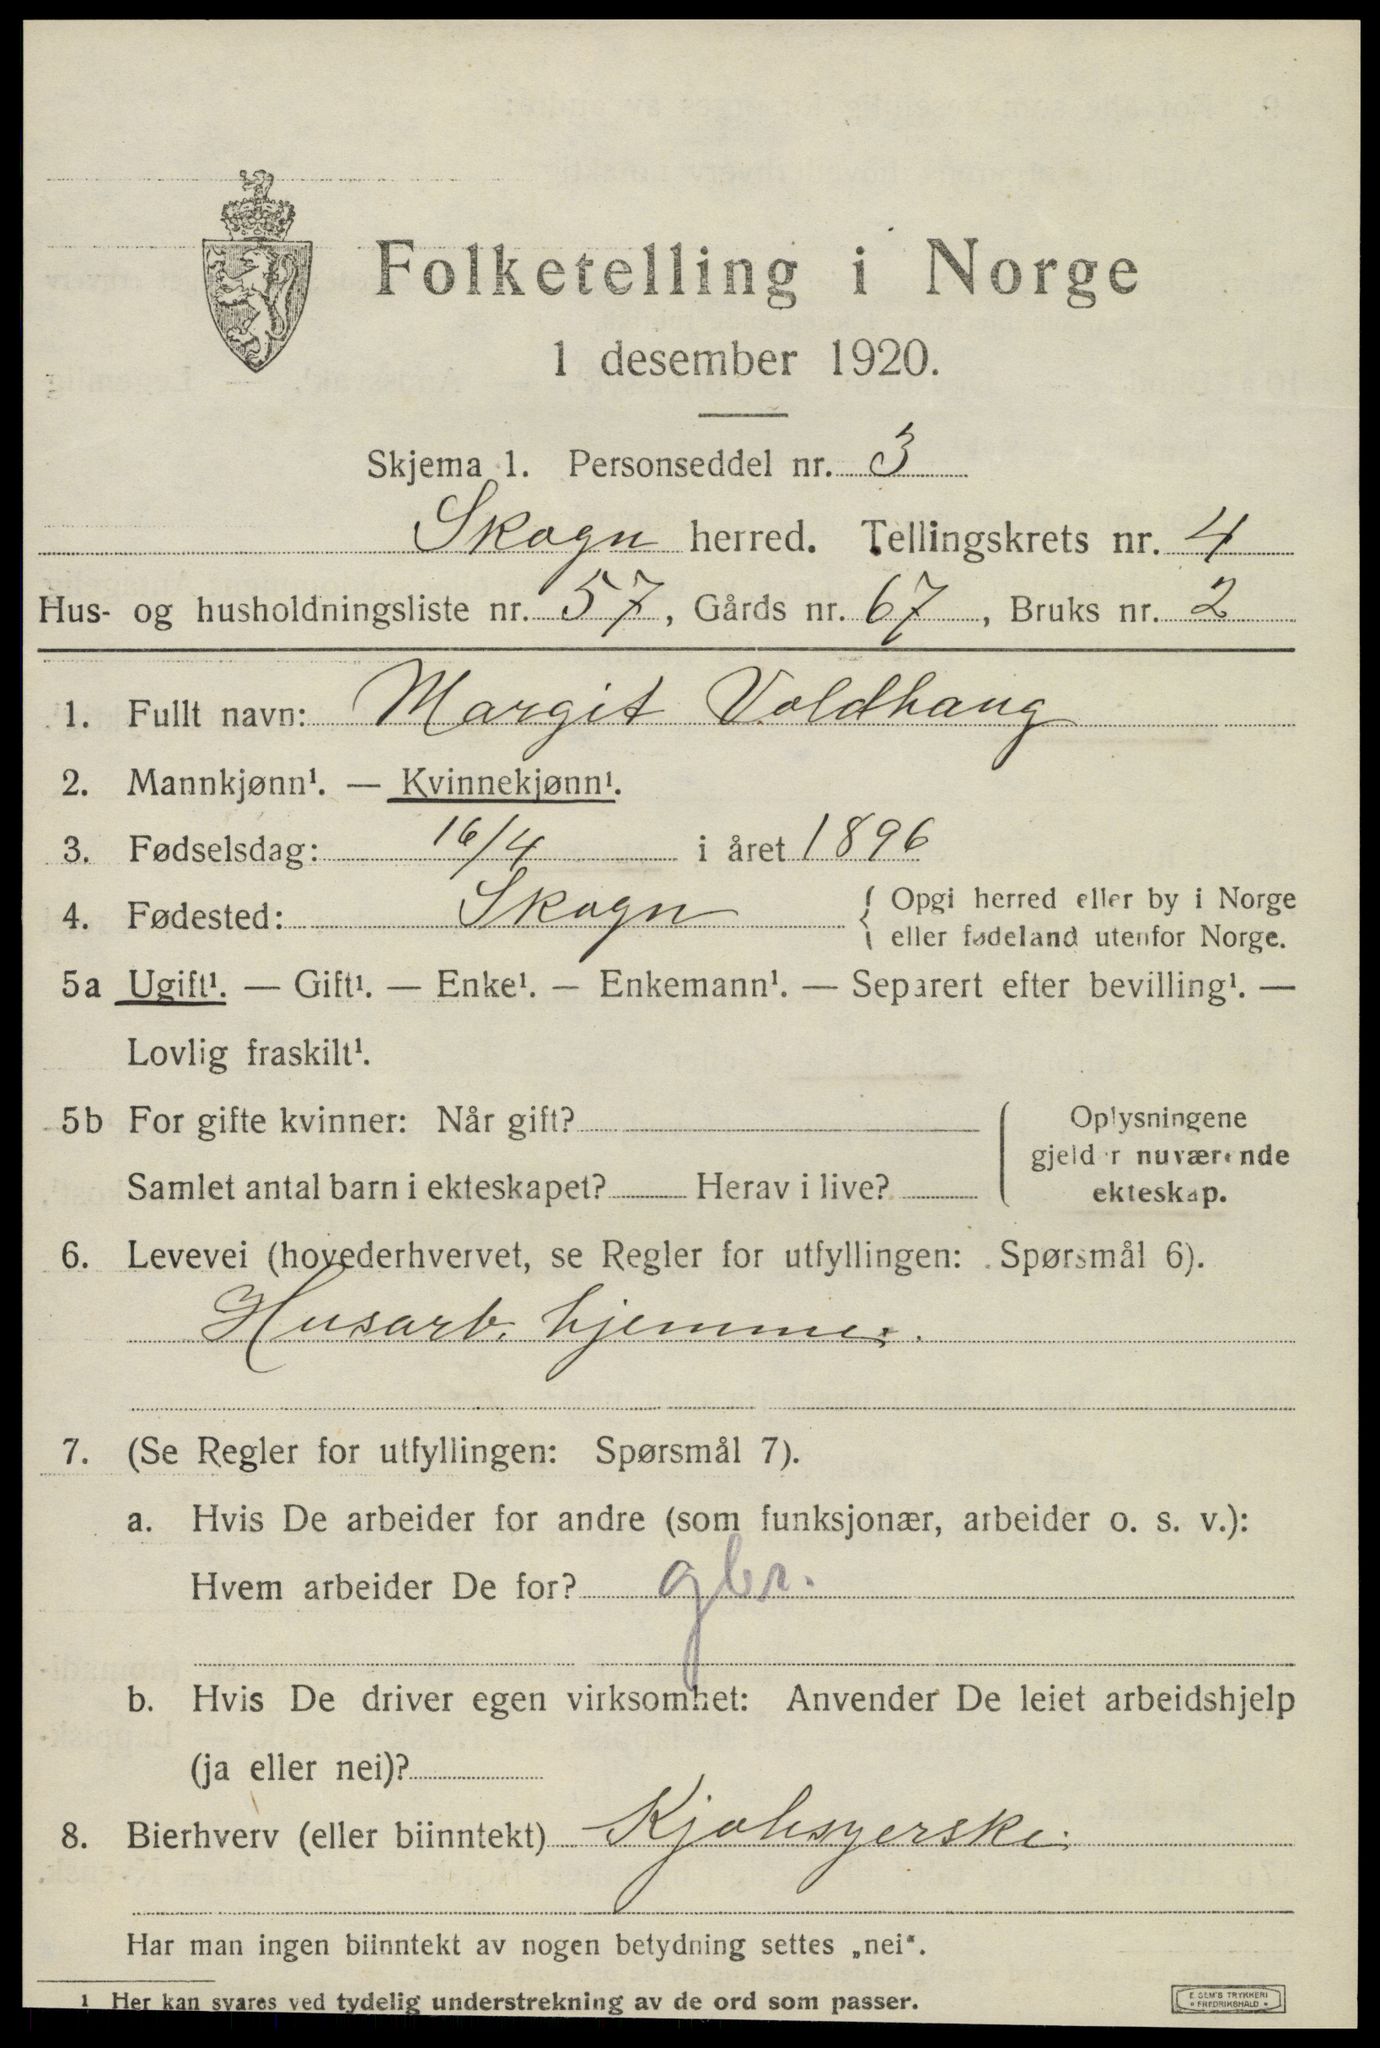 Folketelling i Norge
1 desember 1920.
Skjema 1. Personseddel nr. 3
Skogn herred. Tellingskrets nr. 4
Hus- og husholdningsliste nr. 57, Gårds nr. 67, Bruks nr. 2
1. Fullt navn: Margit Voldhaug
2. Mannkjønn¹. — Kvinnekjønn¹.
3. Fødselsdag: 16/4 i året 1896
4. Fødested: Skogn { Opgi herred eller by i Norge
eller fødeland utenfor Norge.
5a Ugift¹. — Gift¹. — Enke¹. — Enkemann¹. — Separert efter bevilling¹. —
Lovlig fraskilt¹.
5b For gifte kvinner: Når gift?
Samlet antal barn i ekteskapet? Herav i live?
Oplysningene
gjelder nuværende
ekteskap.
6. Levevei (hovederhvervet, se Regler for utfyllingen: Spørsmål 6).
Husarb. hjemme.
7. (Se Regler for utfyllingen: Spørsmål 7).
a. Hvis De arbeider for andre (som funksjonær, arbeider o. s. v.):
Hvem arbeider De for? gbr.
b. Hvis De driver egen virksomhet: Anvender De leiet arbeidshjelp
(ja eller nei)?
8. Bierhverv (eller biinntekt) Kjolesyerske.
Har man ingen biinntekt av nogen betydning settes „nei“.
1 Her kan svares ved tydelig understrekning av de ord som passer.
E. SEM'S TRYKKERI
FREDRIKSHALD